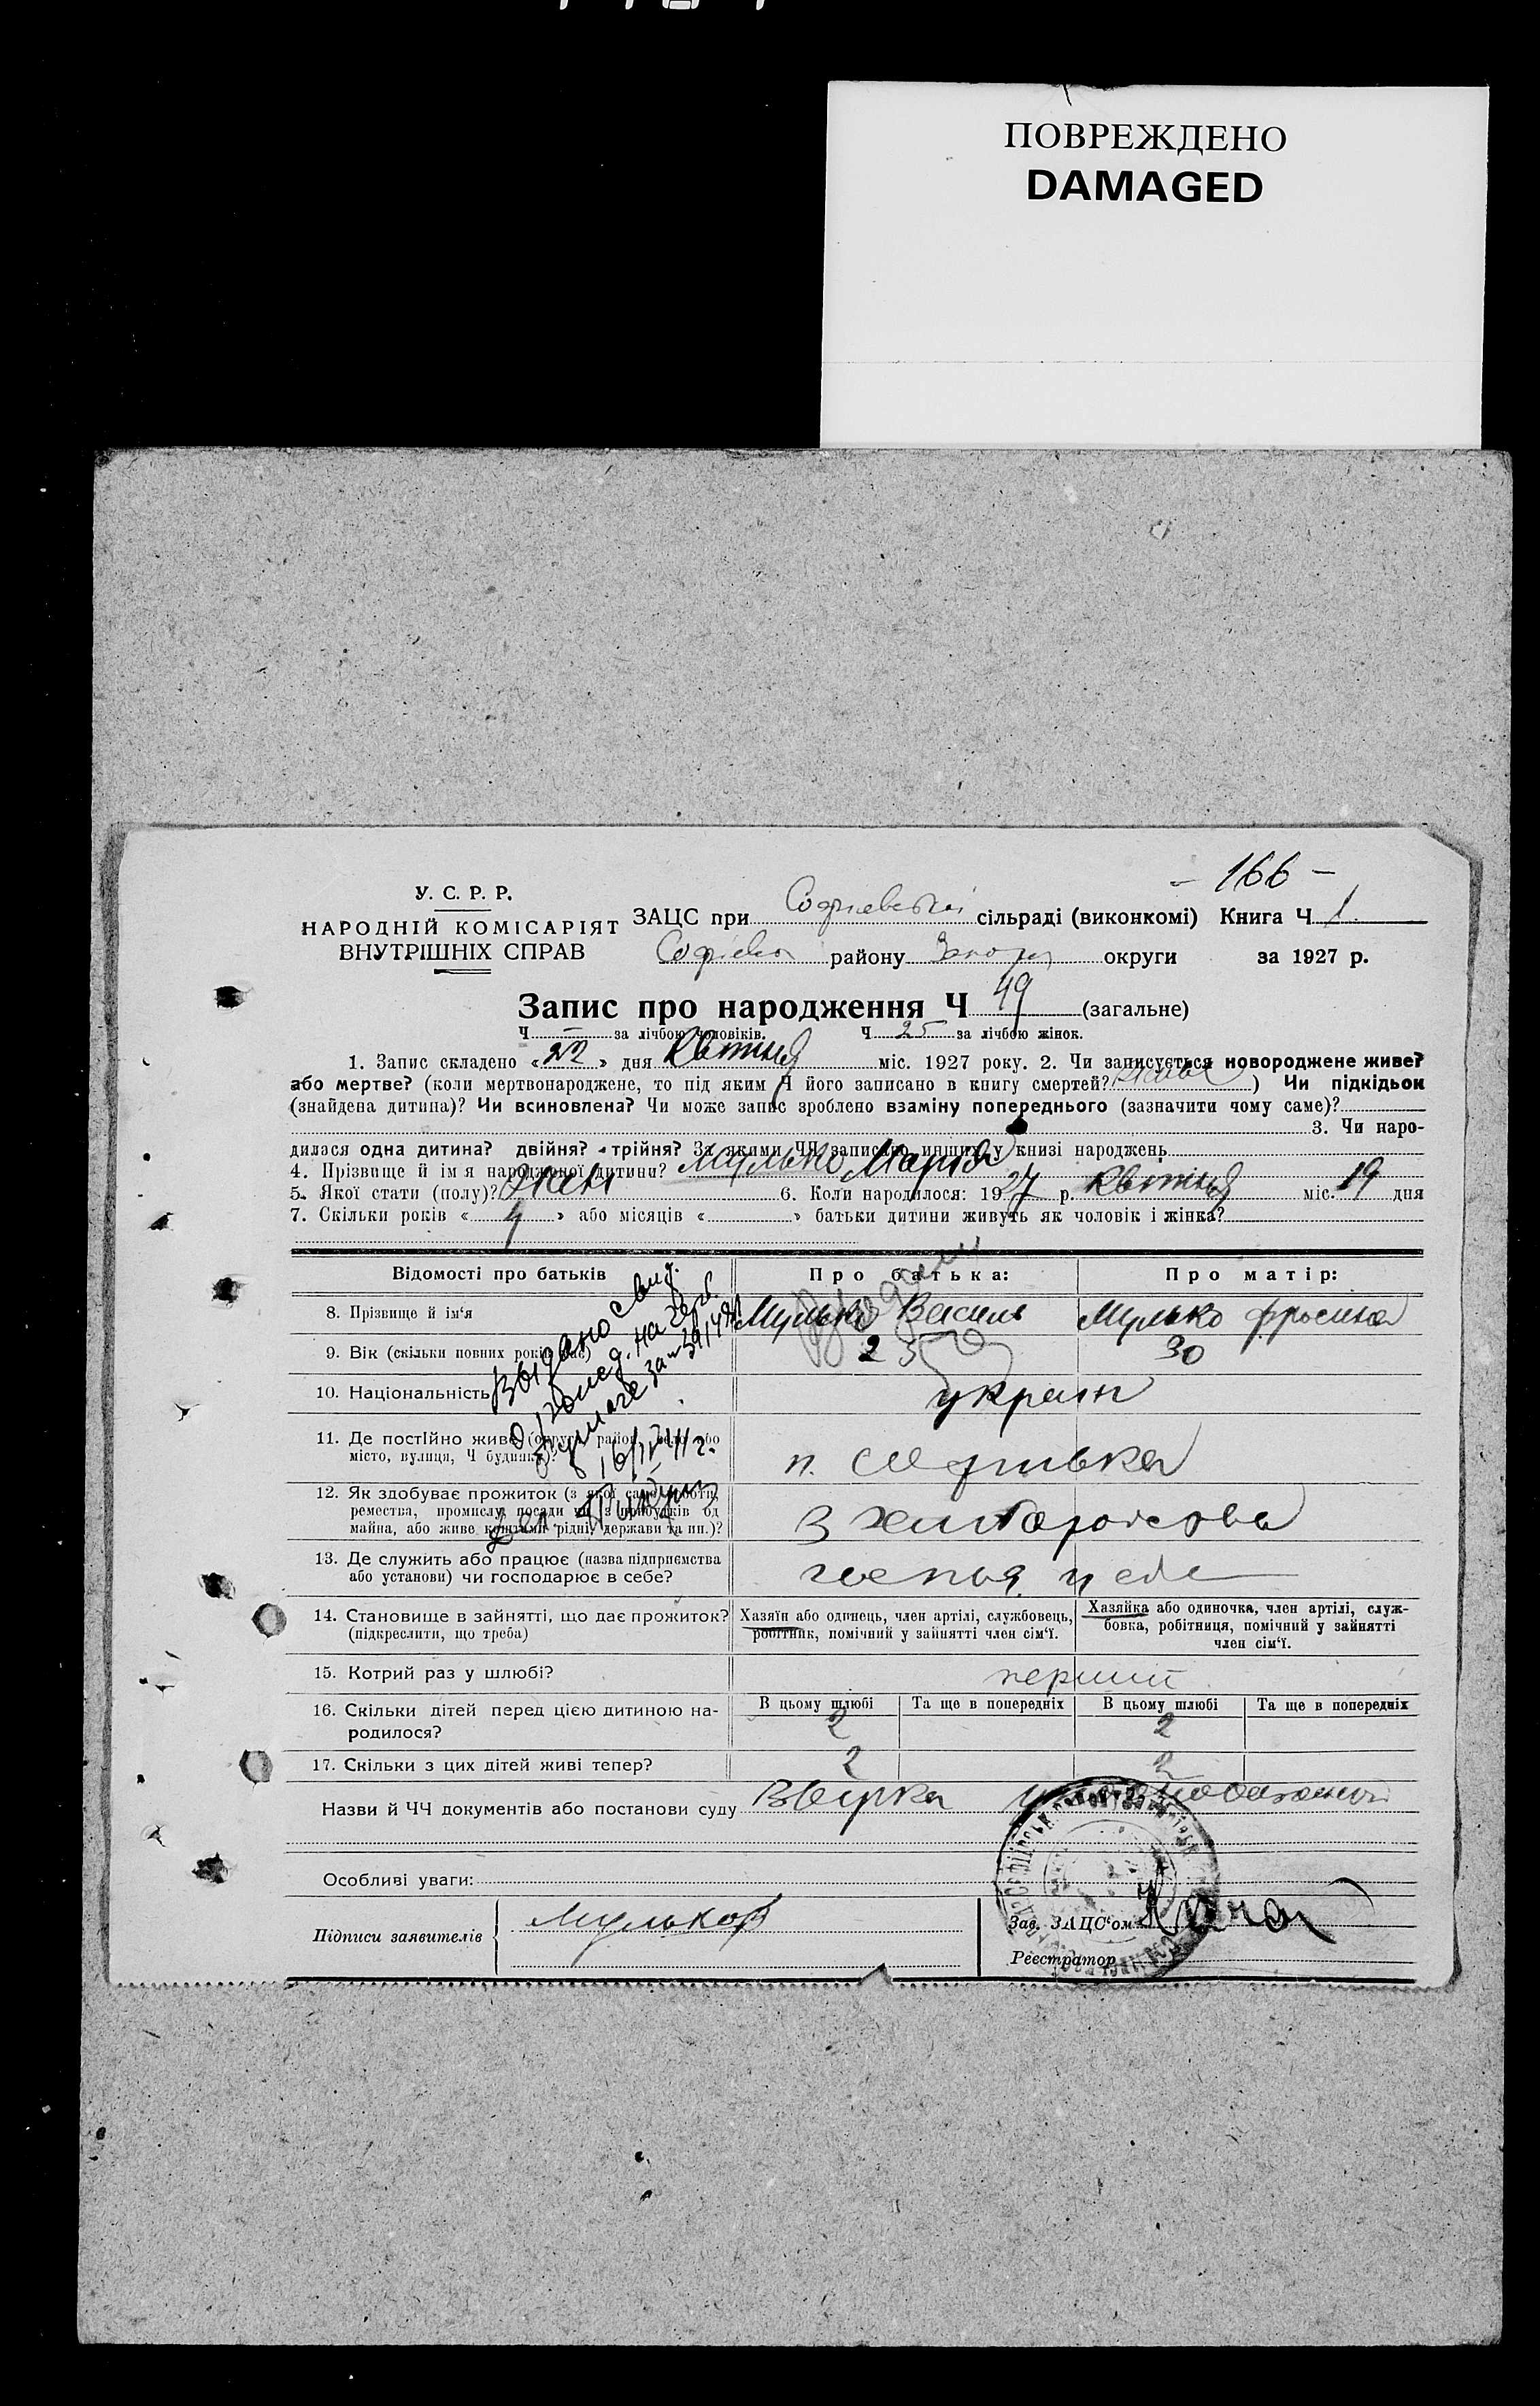 ПОВРЕЖДЕНО
DAMAGED
- 166 -
У. С. Р. Р.
НАРОДНІЙ КОМІСАРІЯТ
ВНУТРІШНІХ СПРАВ
ЗАЦС при Софиевській сільраді (виконкомі) Книга Ч 1.
району округи за 1927 р.
Запис про народження Ч 49 (загальне)
Ч — за лічбою чоловіків. Ч 25 за лічбою жінок.
1. Запис складено «22» дня Квітня міс. 1927 року. 2. Чи записується новороджене живе?
або мертве? (коли мертвонароджене, то під яким Ч його записано в книгу смертей? живе) Чи підкідьок
(знайдена дитина)? Чи всиновлена? Чи може запис зроблено взаміну попереднього (зазначити чому саме)?
3. Чи наро-
дилася одна дитина? двійня? трійня? За якими ЧЧ записано инших у книзі народжень
4. Прізвище й ім'я народженої дитини? Мулько Марія
5. Якої стати (полу)? Жені 6. Коли народилося: 1927 р. Квітня міс. 19 дня
7. Скільки років «4» або місяців « » батьки дитини живуть як чоловік і жінка?
Відомості про батьків Про батька: Про матір:
8. Прізвище й ім'я Мулько Василь Мулько Фросина
9. Вік (скільки повних років має) 25 30
10. Національність україн
11. Де постійно живе (округа, район, село або
місто, вулиця, Ч будинку)?
12. Як здобуває прожиток (з якої саме роботи,
ремества, промислу, посади чи з прибутків од
майна, або живе коштами рідні, держави та ин.)?
З хліборобства
13. Де служить або працює (назва підприємства
або установи) чи господарює в себе?
14. Становище в зайнятті, що дає прожиток?
(підкреслити, що треба)
Хазяїн або одинець, член артілі, службовець,
робітник, помічний у зайнятті член сім'ї.
Хазяйка або одиночка, член артілі, служ-
бовка, робітниця, помічний у зайнятті
член сім'ї.
15. Котрий раз у шлюбі? перший
16. Скільки дітей перед цією дитиною на-
родилося?
В цьому шлюбі Та ще в попередніх В цьому шлюбі Та ще в попередніх
2 2
17. Скільки з цих дітей живі тепер? 2 2
Выдано свид.
на герб.
бумаге за №
16/IV 41 г.
Назви й ЧЧ документів або постанови суду
Особливі уваги:
Підписи заявителів Мулько
Зав. ЗАЦС'ом
Реєстратор